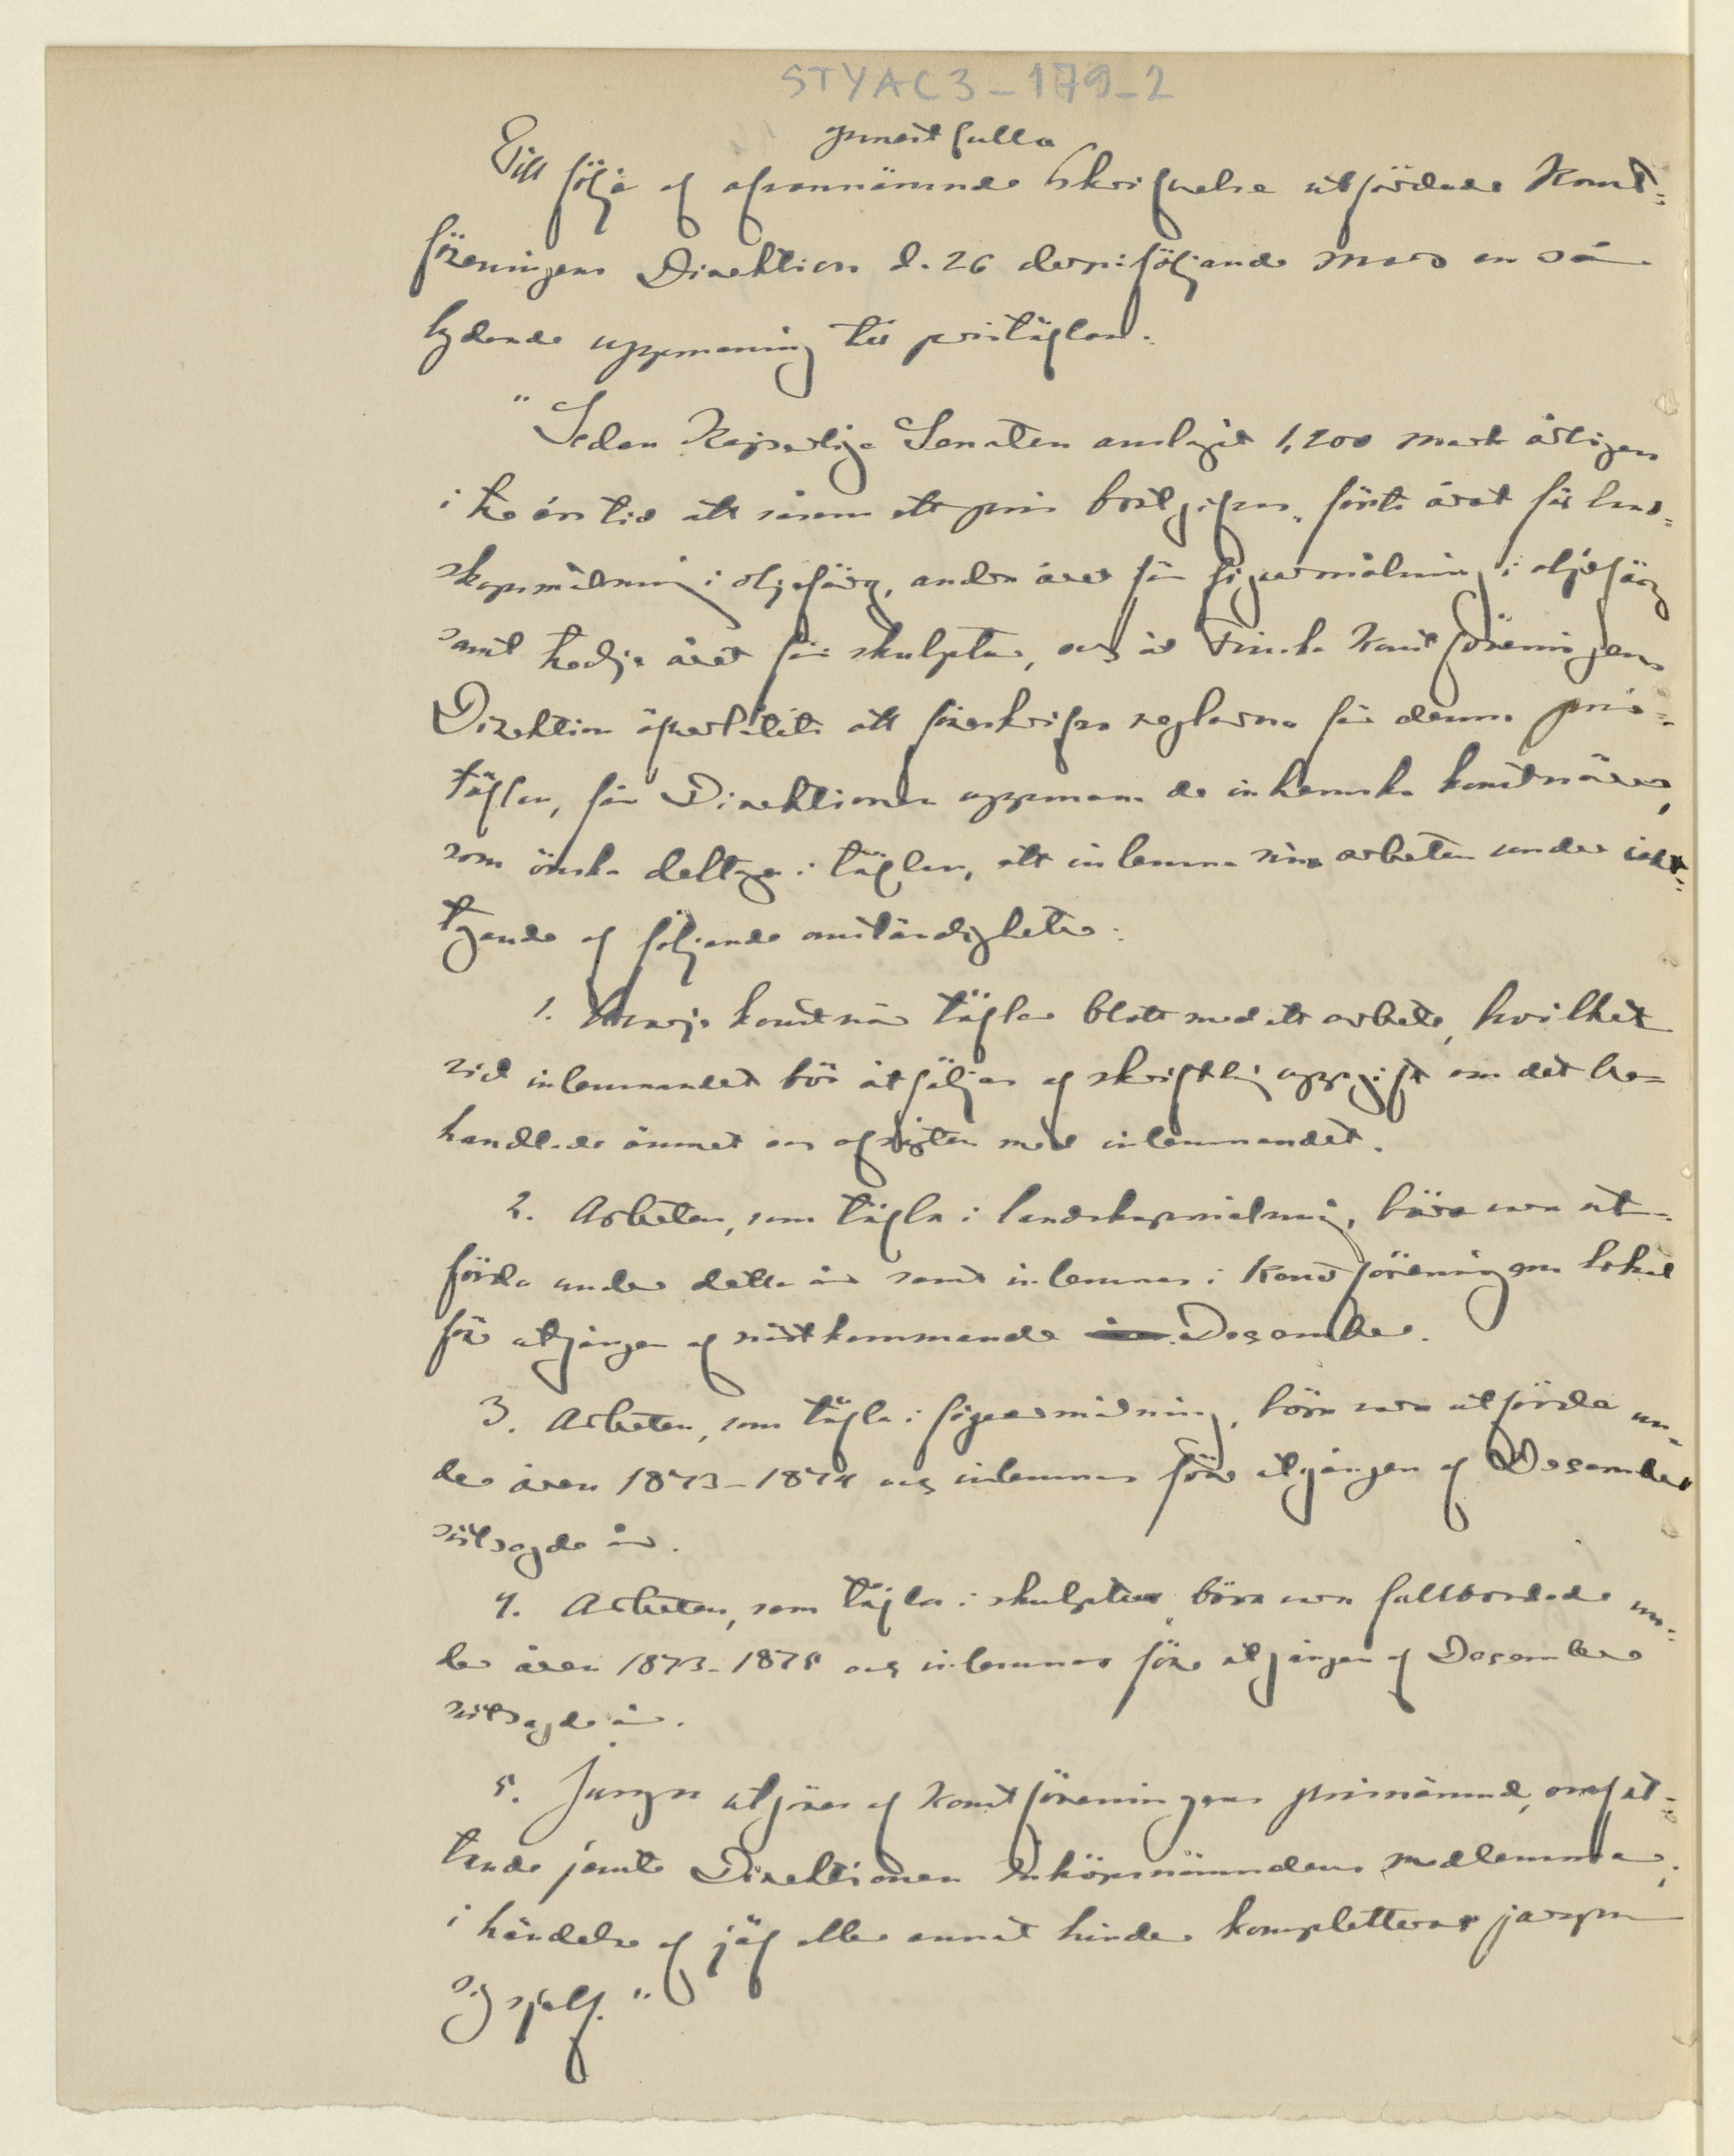 STYAC3-179-2
gunstfulla
Till följe af ofvannämnde skrifvelse utfärdade Konst-
föreningens Direktion d. 26 derpåföljande Mars en så
lydande uppmaning till pristäflan.
"Sedan Kejserliga Senaten anslagit 1,200 mark årligen
i tre års tid att såsom ett pris bortgifvas, första året för land-
skapsmålning i oljefärg, andra året för figurmålning i oljefärg
samt tredje året för skulptur, och åt Finska Konstföreningens
Direktion öfverlåtits att föreskrifva reglorna för denna pris-
täflan, får Direktionen uppmana de inhemska konstnärer,
som önska deltaga i täflan, att inlemna sina arbeten under iakt-
tagande af följande omständigheter:
1. Hvarje konstnär täflar blott med ett arbete, hvilket
vid inlemnandet bör åtföljas af skriftlig uppgift om det be-
handlade ämnet och afsigten med inlemnandet.
2. Arbeten, som täfla i landskapsmålning, böra vara ut-
förda under detta år samt inlemnas i Konstföreningens lokal
före utgången af nästkommande December.
3. Arbeten, som täfla i figurmålning, böra vara utförda un-
der åren 1873-1874 och inlemnas före utgången af December
sistsagda år.
4. Arbeten, som täfla i skulptur, böra vara fullbordade un-
der åren 1873-1875 och inlemnas före utgången af December
sistsagda år.
5. Juryn utgöres af Konstföreningens prisnämnd, omfat-
tande jemte Direktionen Inköpsnämndens medlemmar;
i händelse af jäf eller annat hinder kompletterar juryn
sig sjelf."